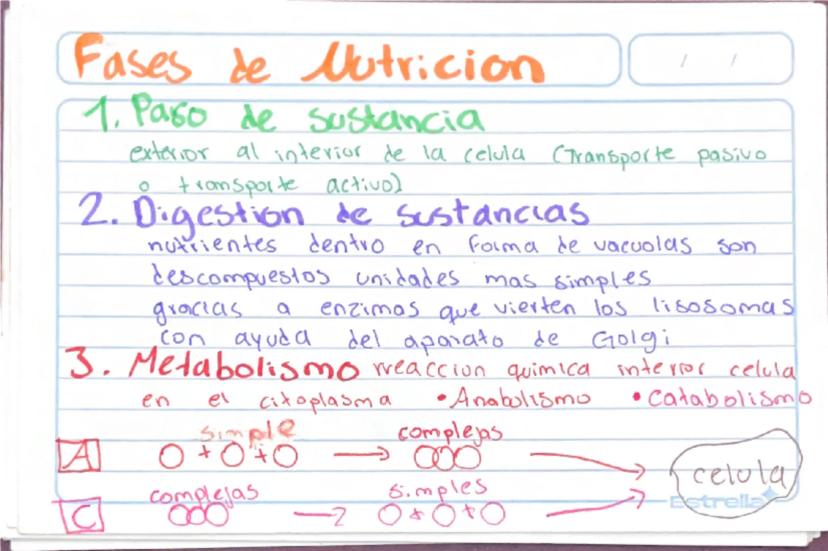 Fases de Nutricion
/ /
1. Paso de sustancia
exterior al interior de la celula (Transporte pasivo
o transporte activo)
2. Digestion de sustancias
nutrientes dentro en forma de vacuolas son
descompuestos unidades mas simples
gracias a enzimas que vierten los lisosomas
con ayuda del aparato de Golgi
3. Metabolismo rreaccion quimica interior celula
en el citoplasma • Anabolismo • Catabolismo
simple complejas
A O + O + O → OOO
celula
Estrella
complejas simples
C OOO → O + O + O →